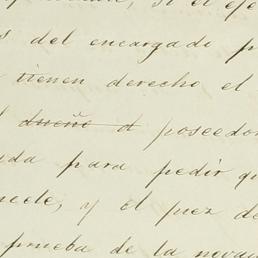 si el eje
s del encargado p
tienen derecho el
dueño o poseedor
da para pedir qu
ncete, y el juez de
prueba de la nova